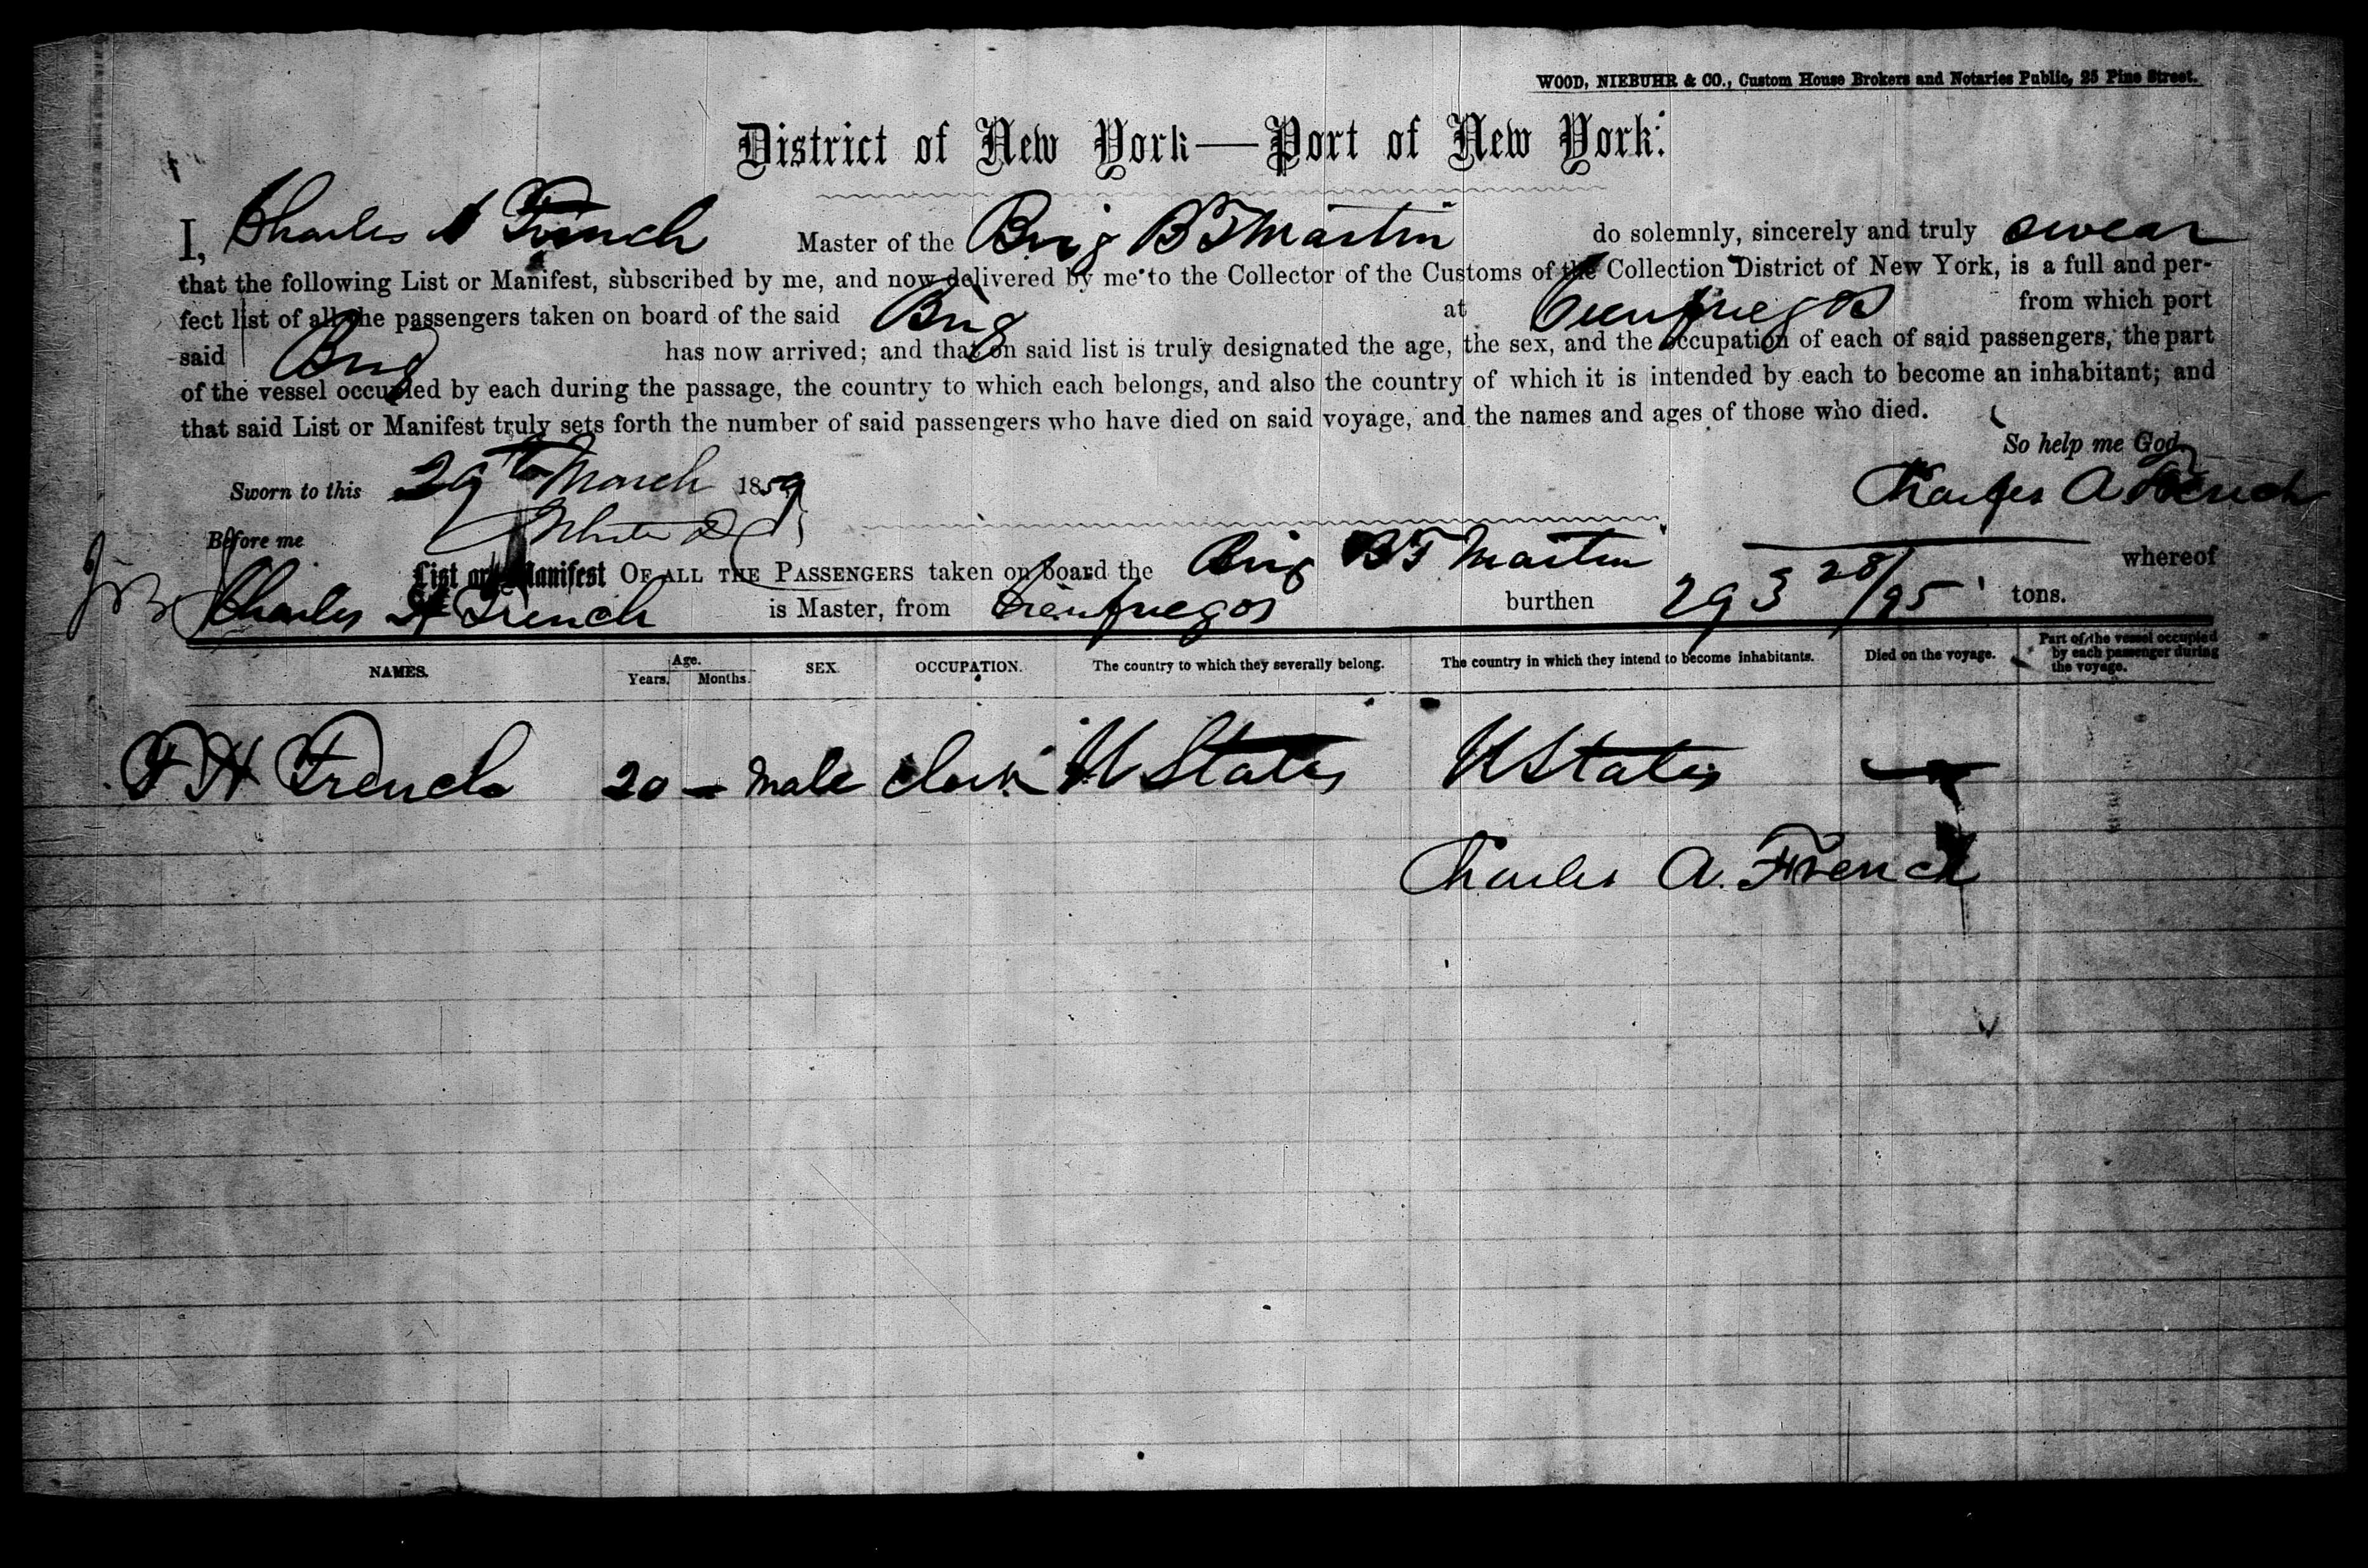 WOOD, NIEBUHR & CO., Custom House Brokers and Notaries Public, 25 Pine Street.
District of New York—Port of New York:
I, Charles A French Master of the Brig B F Martin do solemnly, sincerely and truly swear
that the following List or Manifest, subscribed by me, and now delivered by me to the Collector of the Customs of the Collection District of New York, is a full and per-
fect list of all the passengers taken on board of the said Brig at Cienfuegos from which port
said Brig has now arrived; and that on said list is truly designated the age, the sex, and the occupation of each of said passengers, the part
of the vessel occupied by each during the passage, the country to which each belongs, and also the country of which it is intended by each to become an inhabitant; and
that said List or Manifest truly sets forth the number of said passengers who have died on said voyage, and the names and ages of those who died.
So help me God.
Sworn to this 29th March 1859 Charles A French
Before me
List or Manifest OF ALL THE PASSENGERS taken on board the Brig B F Martin whereof
Charles A French is Master, from Cienfuegos burthen 293 28/95 tons.
NAMES. Age. Years. Months. SEX. OCCUPATION. The country to which they severally belong. The country in which they intend to become inhabitants. Died on the voyage. Part of the vessel occupied by each passenger during the voyage.
F H French 20 — Male Clerk U States U States —
Charles A. French